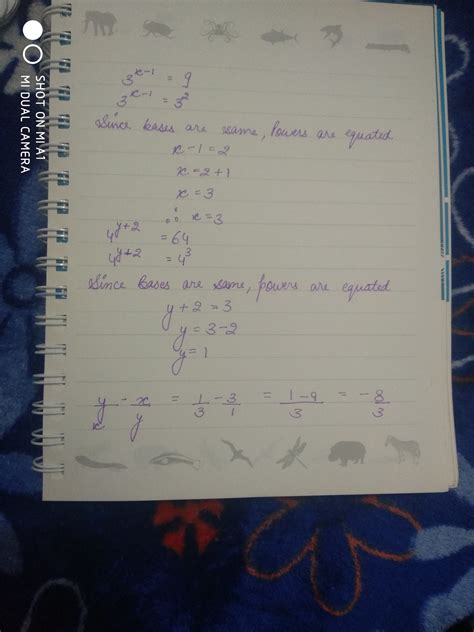 SHOT ON MI A1
MI DUAL CAMERA
3^(x-1) = 9
3^(x-1) = 3^2
Since bases are same, Powers are equated
x - 1 = 2
x = 2 + 1
x = 3
∴ x = 3
4^(y+2) = 64
4^(y+2) = 4^3
Since bases are same, powers are equated
y + 2 = 3
y = 3 - 2
y = 1
y/x - x/y = 1/3 - 3/1 = (1-9)/3 = -8/3